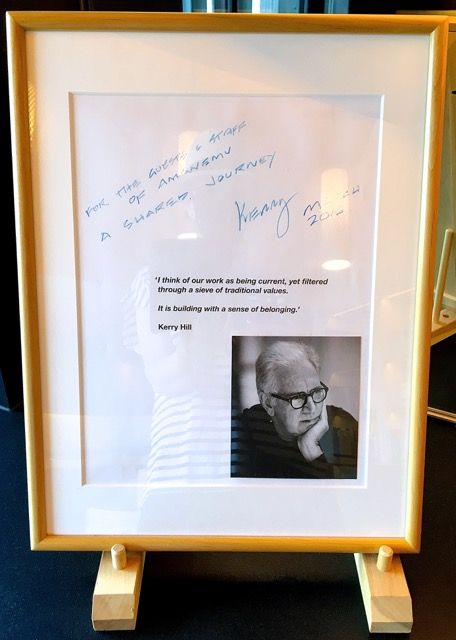 FOR THE GUESTS & STAFF
OF AMANEMU
A SHARED JOURNEY
KERRY MARCH
'I think of our work as being current, yet filtered
through a sieve of traditional values.
It is building with a sense of belonging.'
Kerry Hill